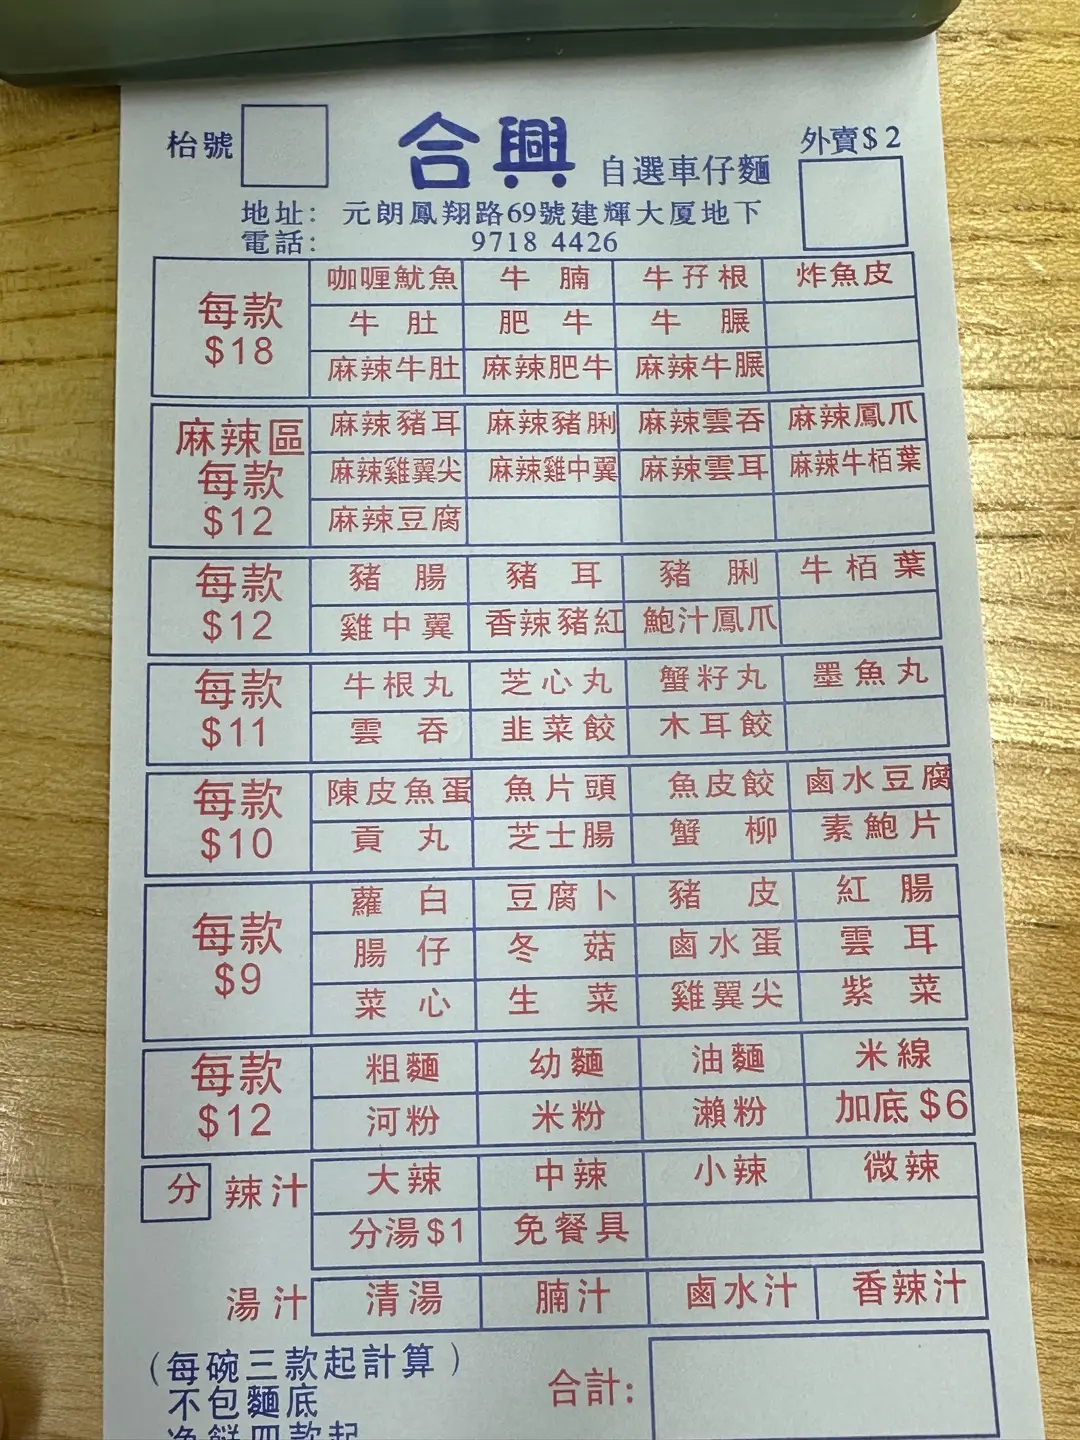 枱號 合興 自選車仔麵 外賣$2
地址: 元朗鳳翔路69號建輝大厦地下
電話: 9718 4426
每款 $18
咖喱魷魚 牛腩 牛孖根 炸魚皮
牛肚 肥牛 牛𦟌
麻辣牛肚 麻辣肥牛 麻辣牛𦟌
麻辣區 每款 $12
麻辣豬耳 麻辣豬脷 麻辣雲吞 麻辣鳳爪
麻辣雞翼尖 麻辣雞中翼 麻辣雲耳 麻辣牛栢葉
麻辣豆腐
每款 $12
豬腸 豬耳 豬脷 牛栢葉
雞中翼 香辣豬紅 鮑汁鳳爪
每款 $11
牛根丸 芝心丸 蟹籽丸 墨魚丸
雲吞 韭菜餃 木耳餃
每款 $10
陳皮魚蛋 魚片頭 魚皮餃 鹵水豆腐
貢丸 芝士腸 蟹柳 素鮑片
每款 $9
蘿白 豆腐卜 豬皮 紅腸
腸仔 冬菇 鹵水蛋 雲耳
菜心 生菜 雞翼尖 紫菜
每款 $12
粗麵 幼麵 油麵 米線
河粉 米粉 瀨粉 加底$6
分 辣汁 大辣 中辣 小辣 微辣
分湯$1 免餐具
湯汁 清湯 腩汁 鹵水汁 香辣汁
(每碗三款起計算)
不包麵底
合計: